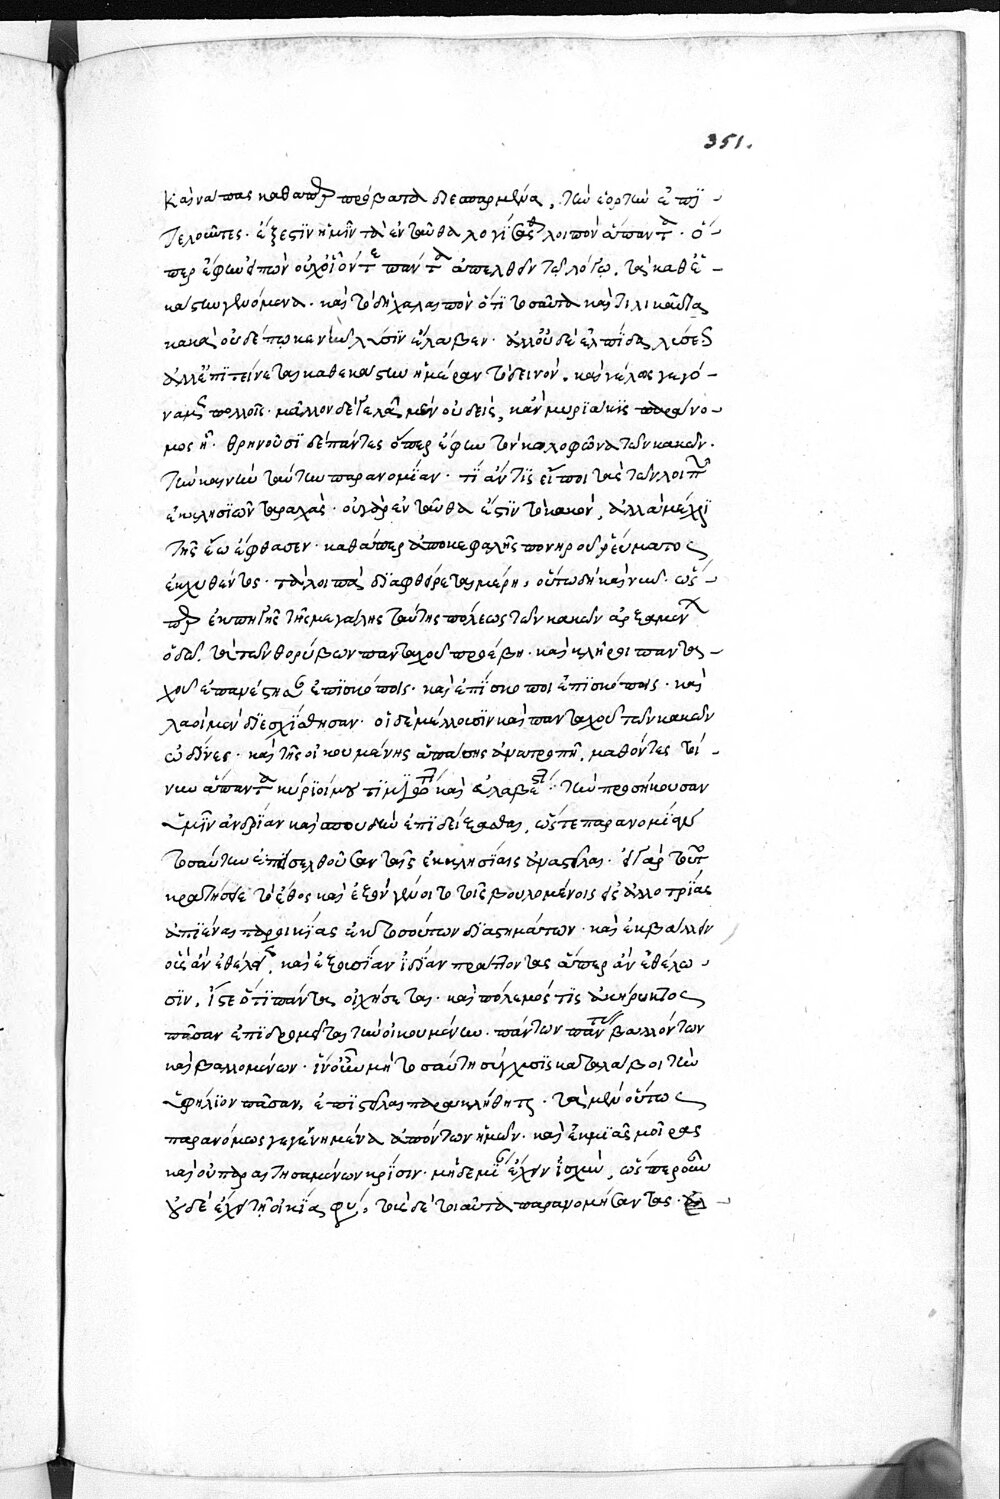 351.
καὶ νάπας καθάπερ πρόβατα διεσπαρμένα, τὴν ἑορτὴν ἐπι-
τελοῦντες. ἔξεστιν ἡμῖν τὰ ἐνταῦθα λογίσασθαι λοιπὸν ἅπαντα. ὅ-
περ ἔφην εἰπὼν οὐχ οἷόν τε πάντα ἀπελθεῖν τῷ λόγῳ, τὰ καθ' ἕ-
καστον γενόμενα. καὶ τὸ δὴ χαλεπὸν ὅτι τοσαῦτα καὶ τηλικαῦτα
κακὰ οὐδέπω καὶ νῦν λύσιν ἔλαβεν. ἀλλ' οὐδὲ ἐλπίδα λύσεως
ἀλλ' ἐπιτείνεται καθεκάστην ἡμέραν τὸ δεινόν. καὶ γέλως γεγό-
ναμεν πολλοῖς. μᾶλλον δὲ γελᾷ μὲν οὐδεὶς, κἂν μυριάκις παράνο-
μος ᾖ. θρηνοῦσι δὲ πάντες ὅπερ ἔφην τὸν κολοφῶνα τῶν κακῶν.
τὴν καινὴν ταύτην παρανομίαν. τί ἄν τις εἴποι τὰς τῶν λοιπῶν
ἐκκλησιῶν ταραχάς. οὐ γὰρ ἐνταῦθα ἔστη τὸ κακόν, ἀλλὰ μέχρι
τῆς ἕω ἔφθασεν. καθάπερ ἀπὸ κεφαλῆς πονηροῦ ῥεύματος
ἐκχυθέντος. τὰ λοιπὰ διαφθείρεται μέρη, οὕτω δὴ καὶ νῦν. ὥσ-
περ ἐκ πηγῆς τῆς μεγάλης ταύτης πόλεως τῶν κακῶν ἀρξαμένων
ὁδῷ. τὰ τῶν θορύβων πανταχοῦ προέβη. καὶ κλῆροι παντα-
χοῦ ἐπανέστησαν ἐπισκόποις. καὶ ἐπίσκοποι ἐπισκόποις. καὶ
λαοὶ μὲν διεσχίσθησαν. οἱ δὲ μέλλουσιν καὶ πανταχοῦ τῶν κακῶν
ὠδῖνες. καὶ τῆς οἰκουμένης ἁπάσης ἀνατροπή. μαθόντες τοί-
νυν ἅπαντα κύριοί μου τιμιώτατοι καὶ εὐλαβέστατοι. τὴν προσήκουσαν
ὑμῖν ἀνδρίαν καὶ σπουδὴν ἐπιδείξασθαι, ὥστε παρανομίαν
τοσαύτην ἐπεισελθοῦσαν ταῖς ἐκκλησίαις ἀναστεῖλαι. εἰ γὰρ τοῦτο
κρατήσειε τὸ ἔθος καὶ ἐξὸν γένοιτο τοῖς βουλομένοις εἰς ἀλλοτρίας
ἀπιέναι παροικίας ἐκ τοσούτων διαστημάτων. καὶ ἐκβάλλειν
οὓς ἂν ἐθέλοι τις, καὶ ἐξουσίαν ἰδίαν πράττοντας ἅπερ ἂν ἐθέλω-
σιν, ἴστε ὅτι πάντα οἰχήσεται. καὶ πόλεμός τις ἀκήρυκτος
πᾶσαν ἐπιδραμεῖται τὴν οἰκουμένην. πάντων πάντας βαλλόντων
καὶ βαλλομένων. ἵν' οὖν μὴ τοσαύτη σύγχυσις καταλάβοι τὴν
ὑφήλιον πᾶσαν, ἐπιστεῖλαι παρακλήθητε. τὰ μὲν οὕτως
παρανόμως γεγενημένα ἀπόντων ἡμῶν. καὶ ἐκ μιᾶς μοίρας
καὶ οὐ παραιτησαμένων κρίσιν. μηδεμίαν ἔχειν ἰσχύν, ὥσπερ οὖν
οὐδὲ ἔχει τῇ οἰκείᾳ φύσει, τοὺς δὲ τοιαῦτα παρανομήσαντας.